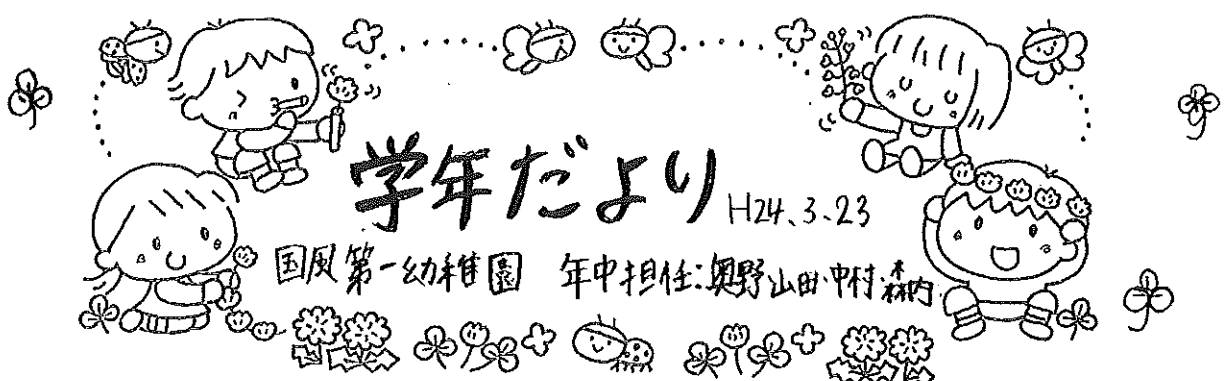 学年だより H24.3.23
国風第一幼稚園 年中担任:奥野山田・中村・森内